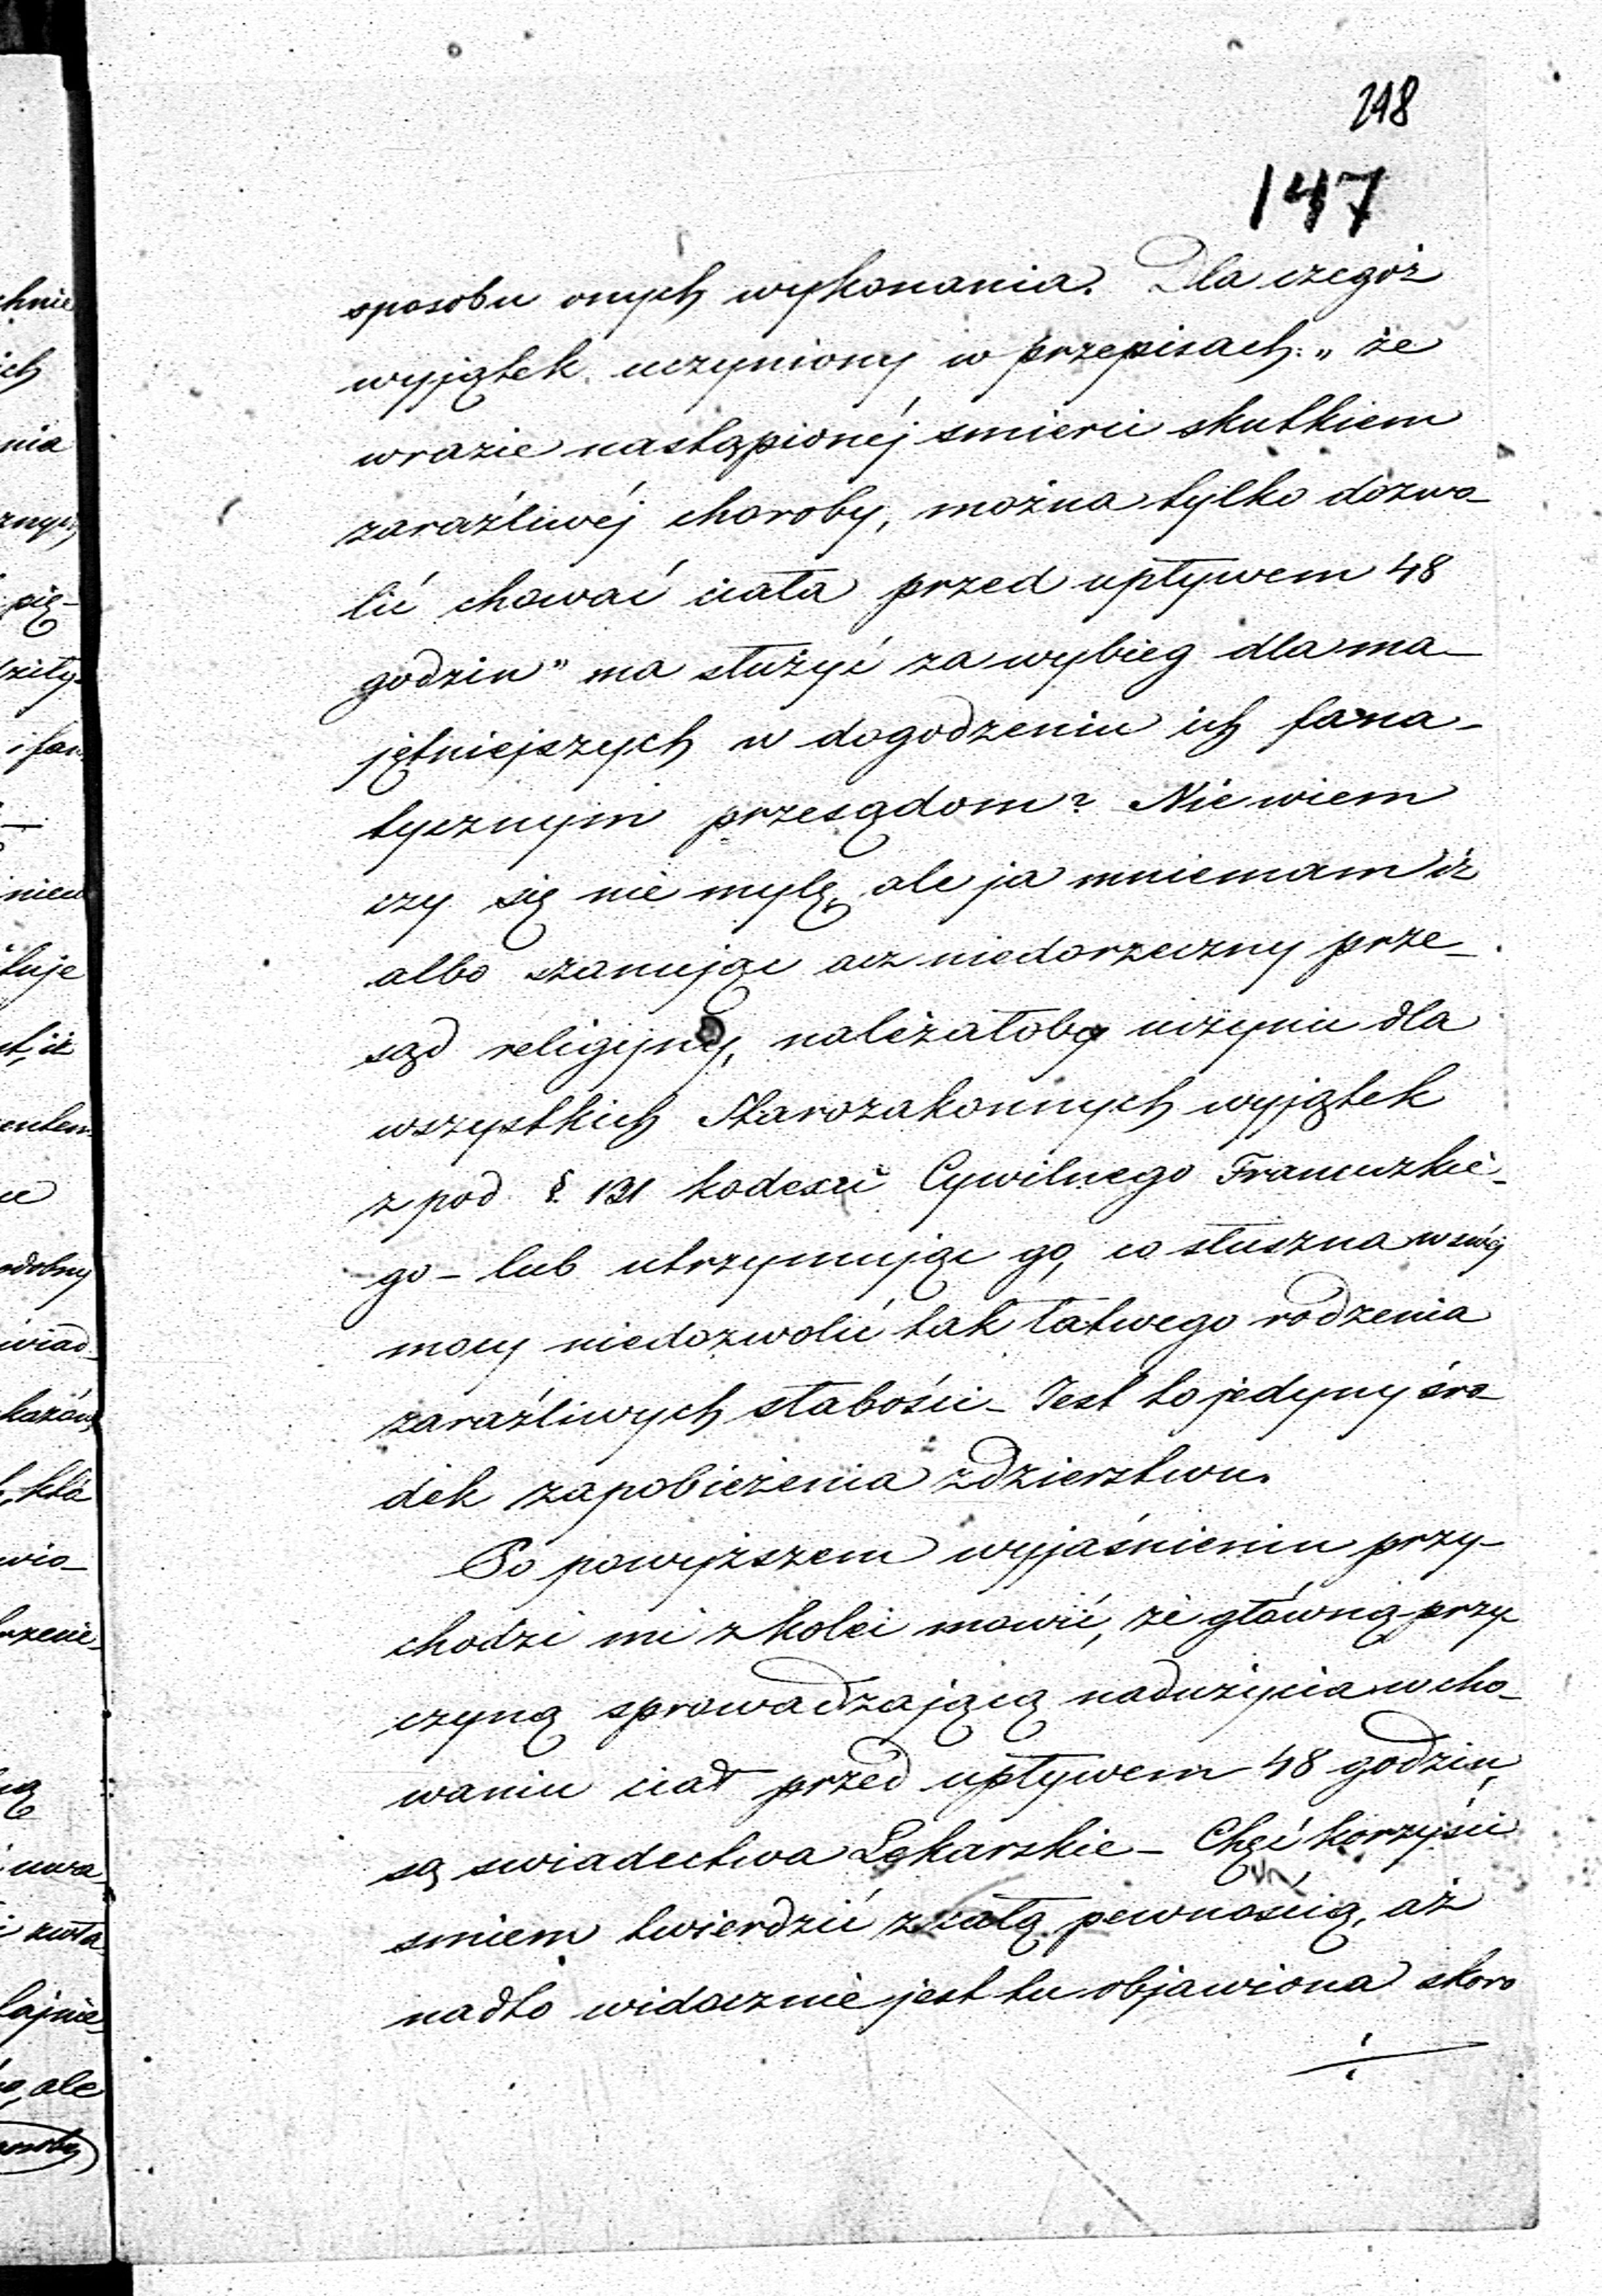 218
147
sposobu onych wykonania. Dla czegóż
wyjątek uczyniony w przepisach: „że
wrazie nastąpionéj smierci skutkiem
zaraźliwéj choroby, można tylko dozwo-
lić chować ciała przed upływem 48
godzin” ma służyć za wybieg dla ma-
jętniejszych w dogodzeniu ich fana-
tycznym przesądom? Nie wiem
czy się nie mylę, ale ja mniemam iż
albo szanując acz niedorzeczny prze-
sąd religijny, należałoby uczynić dla
wszystkich Starozakonnych wyjątek
z pod §. 131 kodexu Cywilnego Francuzkie-
go – lub utrzymując go, co słuszna w swéj
mocy niedozwolić tak łatwego rodzenia
zaraźliwych słabości – Jest to jedyny śro-
dek zapobieżenia zdzierstwu.
Po powyższem wyjaśnieniu przy-
chodzi mi z kolei mowić, że główną przy
czyną sprowadzającą nadużycia w cho-
waniu ciał przed upływem 48 godzin,
są swiadectwa Lekarskie – Chęć korzyści
smiem twierdzić z całą pewnością, aż
nadto widocznie jest tu objawiona skoro
hnie
ich
nia
znych
się-
i fan
niew
tuje
t, iż
entem
ce
odobny
wiad-
kazów,
któ
wio-
rzenie-
uwa-
lajnie-
ale